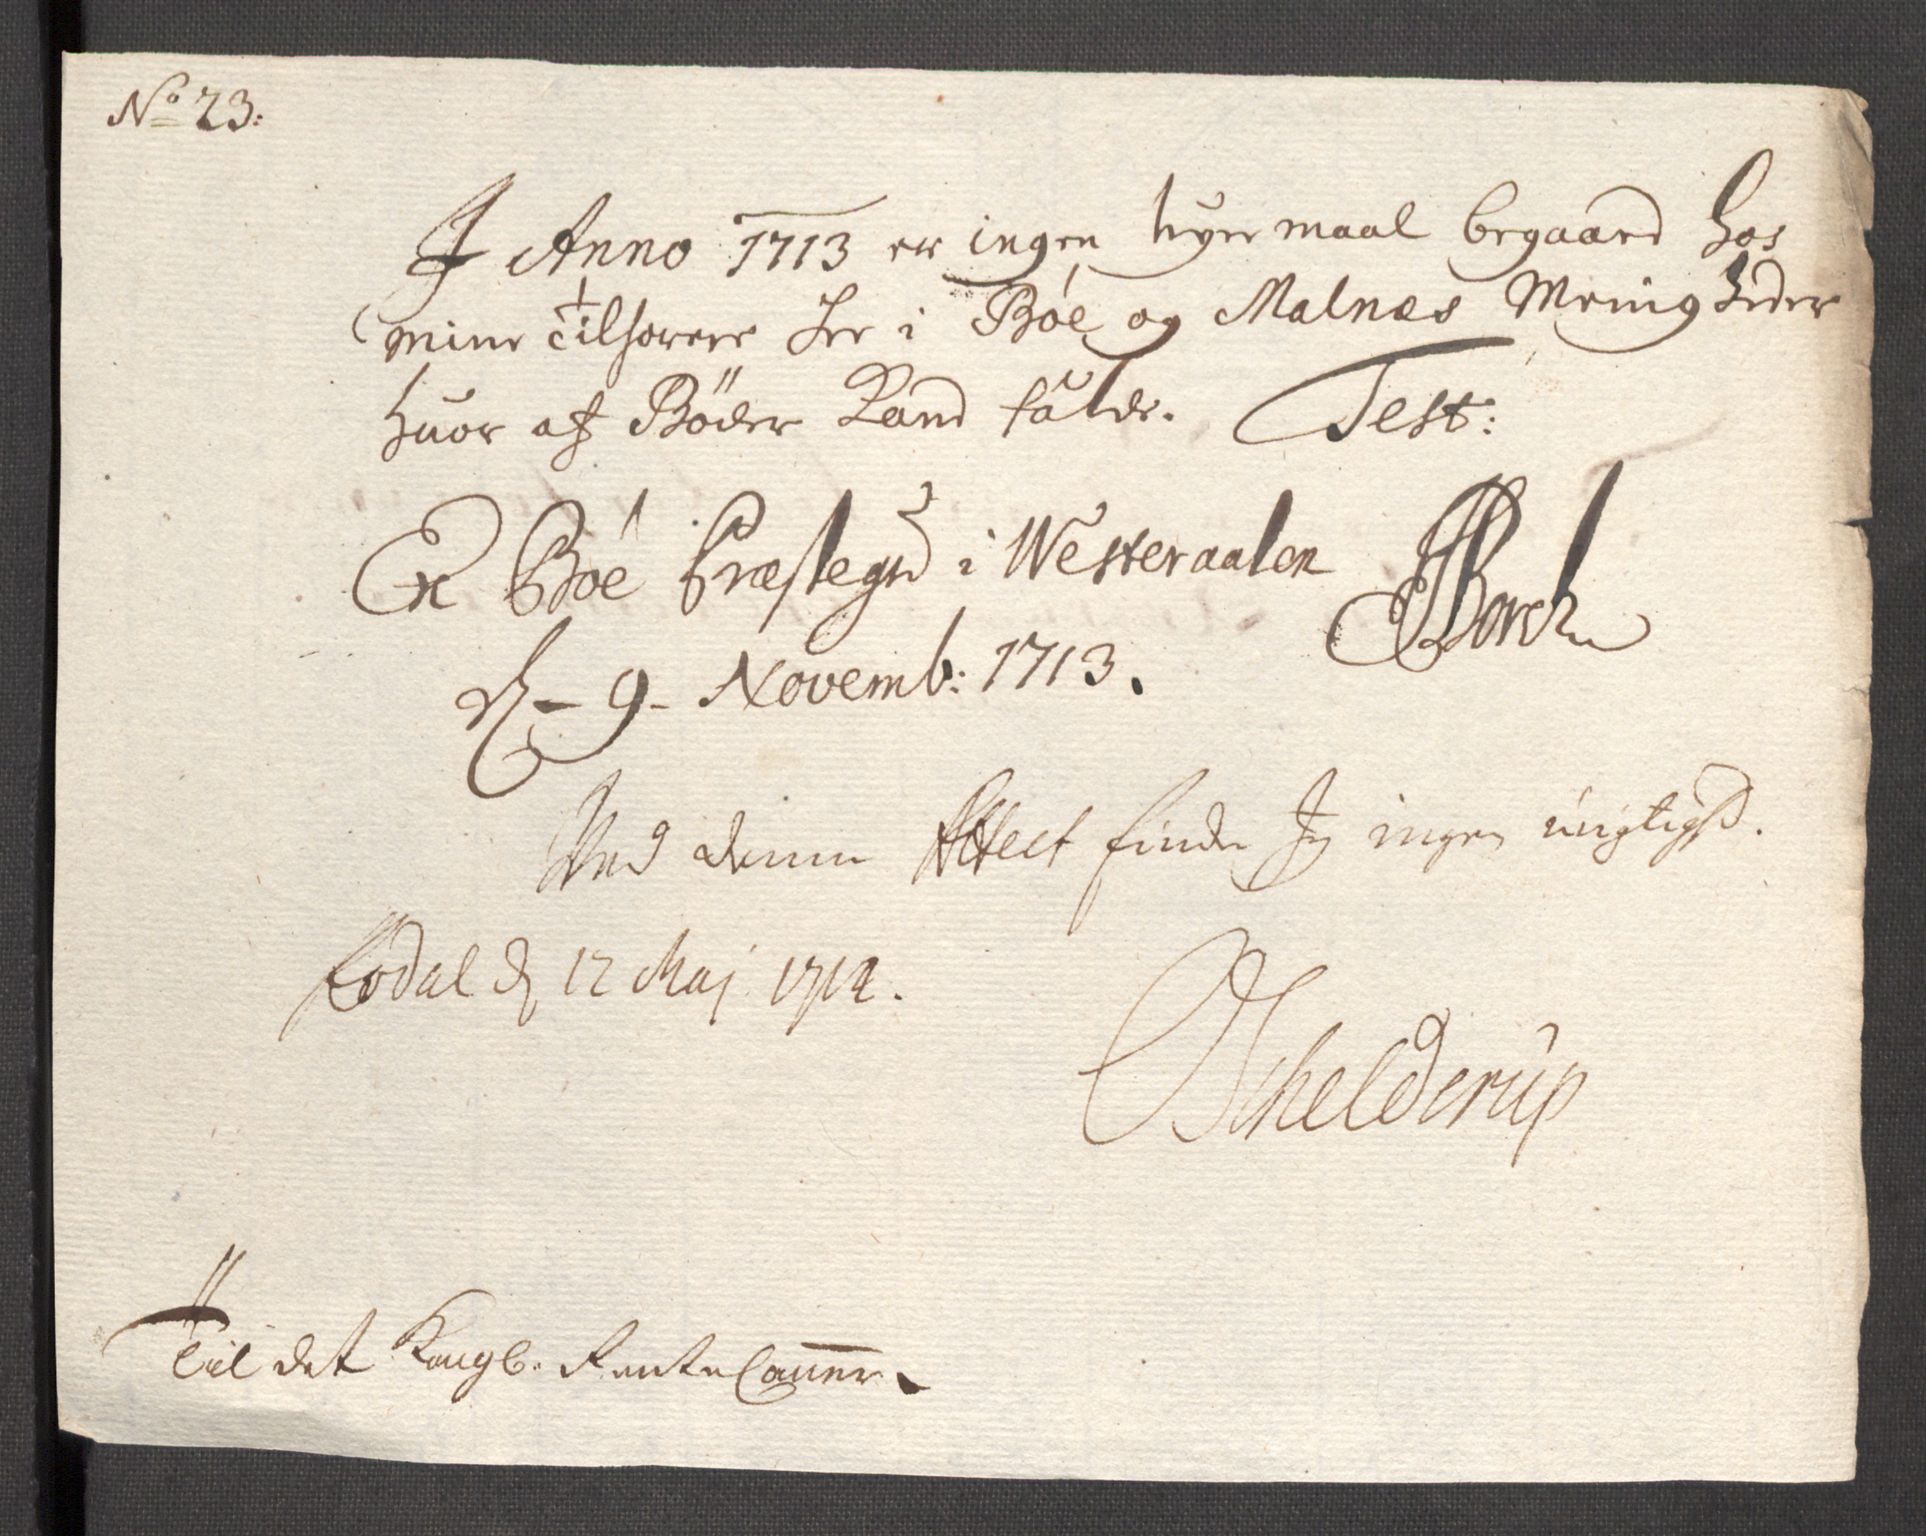 No 23:
I Anno 1713 er ingen leyermaal begaaed hos
mine Tilhørere her i Böe og Malnæs Meenigheder
huor af Böder kand falde. Test:
Ex Böe Præstegrd i Westeraalen
Borch
d. - 9 - Novemb: 1713.
Ved denne Attest finder Jeg ingen urigtighd.
d 12 Maj 1714.
Schelderup
Til det Kongl. RenteCammer.